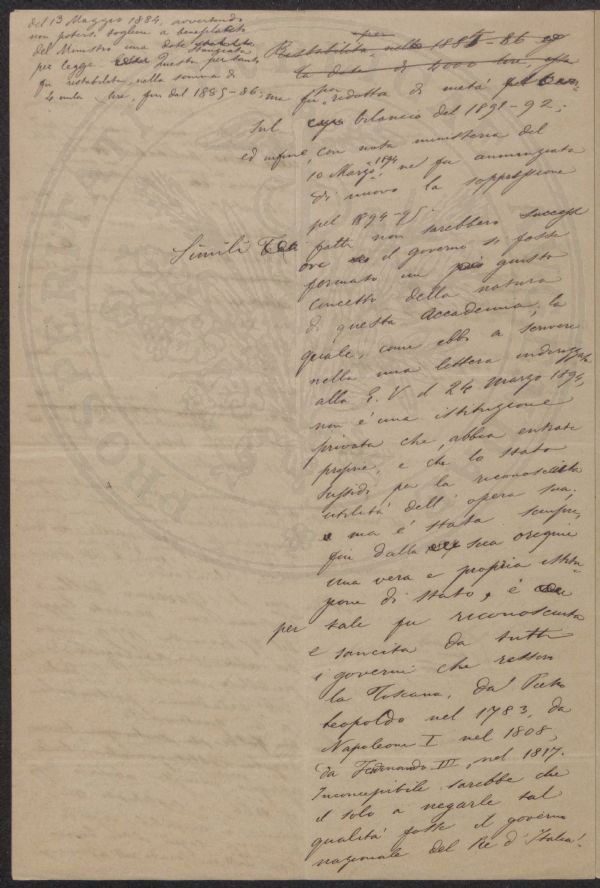 del 13 Maggio 1884, avvertendo
non potersi togliere a beneplacito
del Ministro una dote stanziata
per legge. Questa pertanto
fu ristabilita nella somma di
4 mila lire, fin dal 1885-86; ma
per
Ristabilita nello 1885-86
la dote di 4000 lire,
fu ridotta di metà
sul bilancio del 1891-92;
ed infine, con nota ministeria del
10 Marzo 1894 ne fu annunziata
di nuovo la soppressione
pel 1894-95.
Simili fatti non sarebbero success
ove il governo si fosse
formato un più giusto
concetto della natura
di questa Accademia, la
quale, come ebbi a scrivere
nella mia lettera indirizzata
alla E. V. il 24 marzo 1894,
non è una istituzione
privata che abbia entrate
proprie, e che lo Stato
sussidi per la riconosciuta
utilità dell' opera sua.
ma è stata sempre,
fin dalla sua origine
una vera e propria istitu-
zione di Stato, e
per tale fu riconosciuta
e sancita da tutti
i governi che ressero
la Toscana, da Pietro
Leopoldo nel 1783, da
Napoleone I nel 1808,
da Ferdinando III, nel 1817.
Inconcepibile sarebbe che
il solo a negarle tal
qualità fosse il governo
nazionale del Re d'Italia!